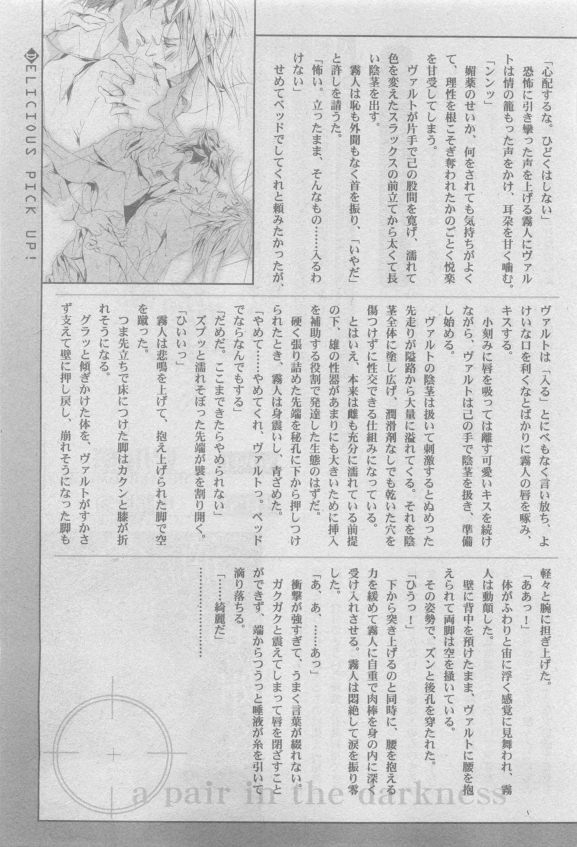 DELICIOUS PICK UP!
「心配するな。ひどくはしない」
恐怖に引き攣った声を上げる霧人にヴァル
トは情の籠もった声をかけ、耳朶を甘く噛む。
「ンンッ」
媚薬のせいか、何をされても気持ちがよく
て、理性を根こそぎ奪われたかのごとく悦楽
を甘受してしまう。
ヴァルトが片手で己の股間を寛げ、濡れて
色を変えたスラックスの前立てから太くて長
い陰茎を出す。
霧人は恥も外聞もなく首を振り、「いやだ」
と許しを請うた。
「怖い。立ったまま、そんなもの……入るわ
けない」
せめてベッドでしてくれと頼みたかったが、
ヴァルトは「入る」とにべもなく言い放ち、よ
けいな口を利くなとばかりに霧人の唇を啄み、
キスする。
小刻みに唇を吸っては離す可愛いキスを続け
ながら、ヴァルトは己の手で陰茎を扱き、準備
し始める。
ヴァルトの陰茎は扱いて刺激するとぬめった
先走りが隘路から大量に溢れてくる。それを陰
茎全体に塗し広げ、潤滑剤なしでも乾いた穴を
傷つけずに性交できる仕組みになっている。
とはいえ、本来は雌も充分に濡れている前提
の下、雄の性器があまりにも大きいために挿入
を補助する役割で発達した生態のはずだ。
硬く張り詰めた先端を秘孔に下から押しつけ
られたとき、霧人は身震いし、青ざめた。
「やめて……やめてくれ、ヴァルトっ。ベッド
でならなんでもする」
「だめだ。ここまできたらやめられない」
ズプッと濡れそぼった先端が襞を割り開く。
「ひいいっ」
霧人は悲鳴を上げて、抱え上げられた脚で空
を蹴った。
つま先立ちで床につけた脚はカクンと膝が折
れそうになる。
グラッと傾ぎかけた体を、ヴァルトがすかさ
ず支えて壁に押し戻し、崩れそうになった脚も
軽々と腕に担ぎ上げた。
「ああっ！」
体がふわりと宙に浮く感覚に見舞われ、霧
人は動顛した。
壁に背中を預けたまま、ヴァルトに腰を抱
えられて両脚は空を掻いている。
その姿勢で、ズンと後孔を穿たれた。
「ひうっ！」
下から突き上げるのと同時に、腰を抱える
力を緩めて霧人に自重で肉棒を身の内に深く
受け入れさせる。霧人は悶絶して涙を振り零
した。
「あ、あ、……あっ」
衝撃が強すぎて、うまく言葉が綴れない。
ガクガクと震えてしまって唇を閉ざすこと
ができず、端からつうっと唾液が糸を引いて
滴り落ちる。
「……綺麗だ」
………………………………
a pair in the darkness